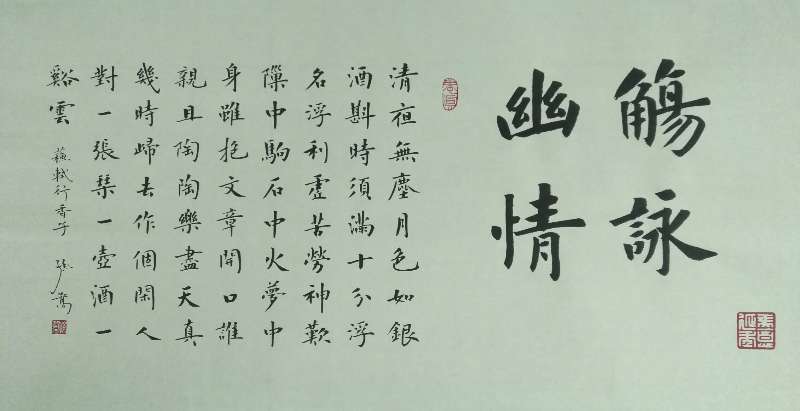 觴詠
幽情
清夜無塵月色如銀
酒斟時須滿十分浮
名浮利虛苦勞神歎
隙中駒石中火夢中
身雖抱文章開口誰
親且陶陶樂盡天真
幾時歸去作個閑人
對一張琴一壺酒一
谿雲
蘇軾行香子